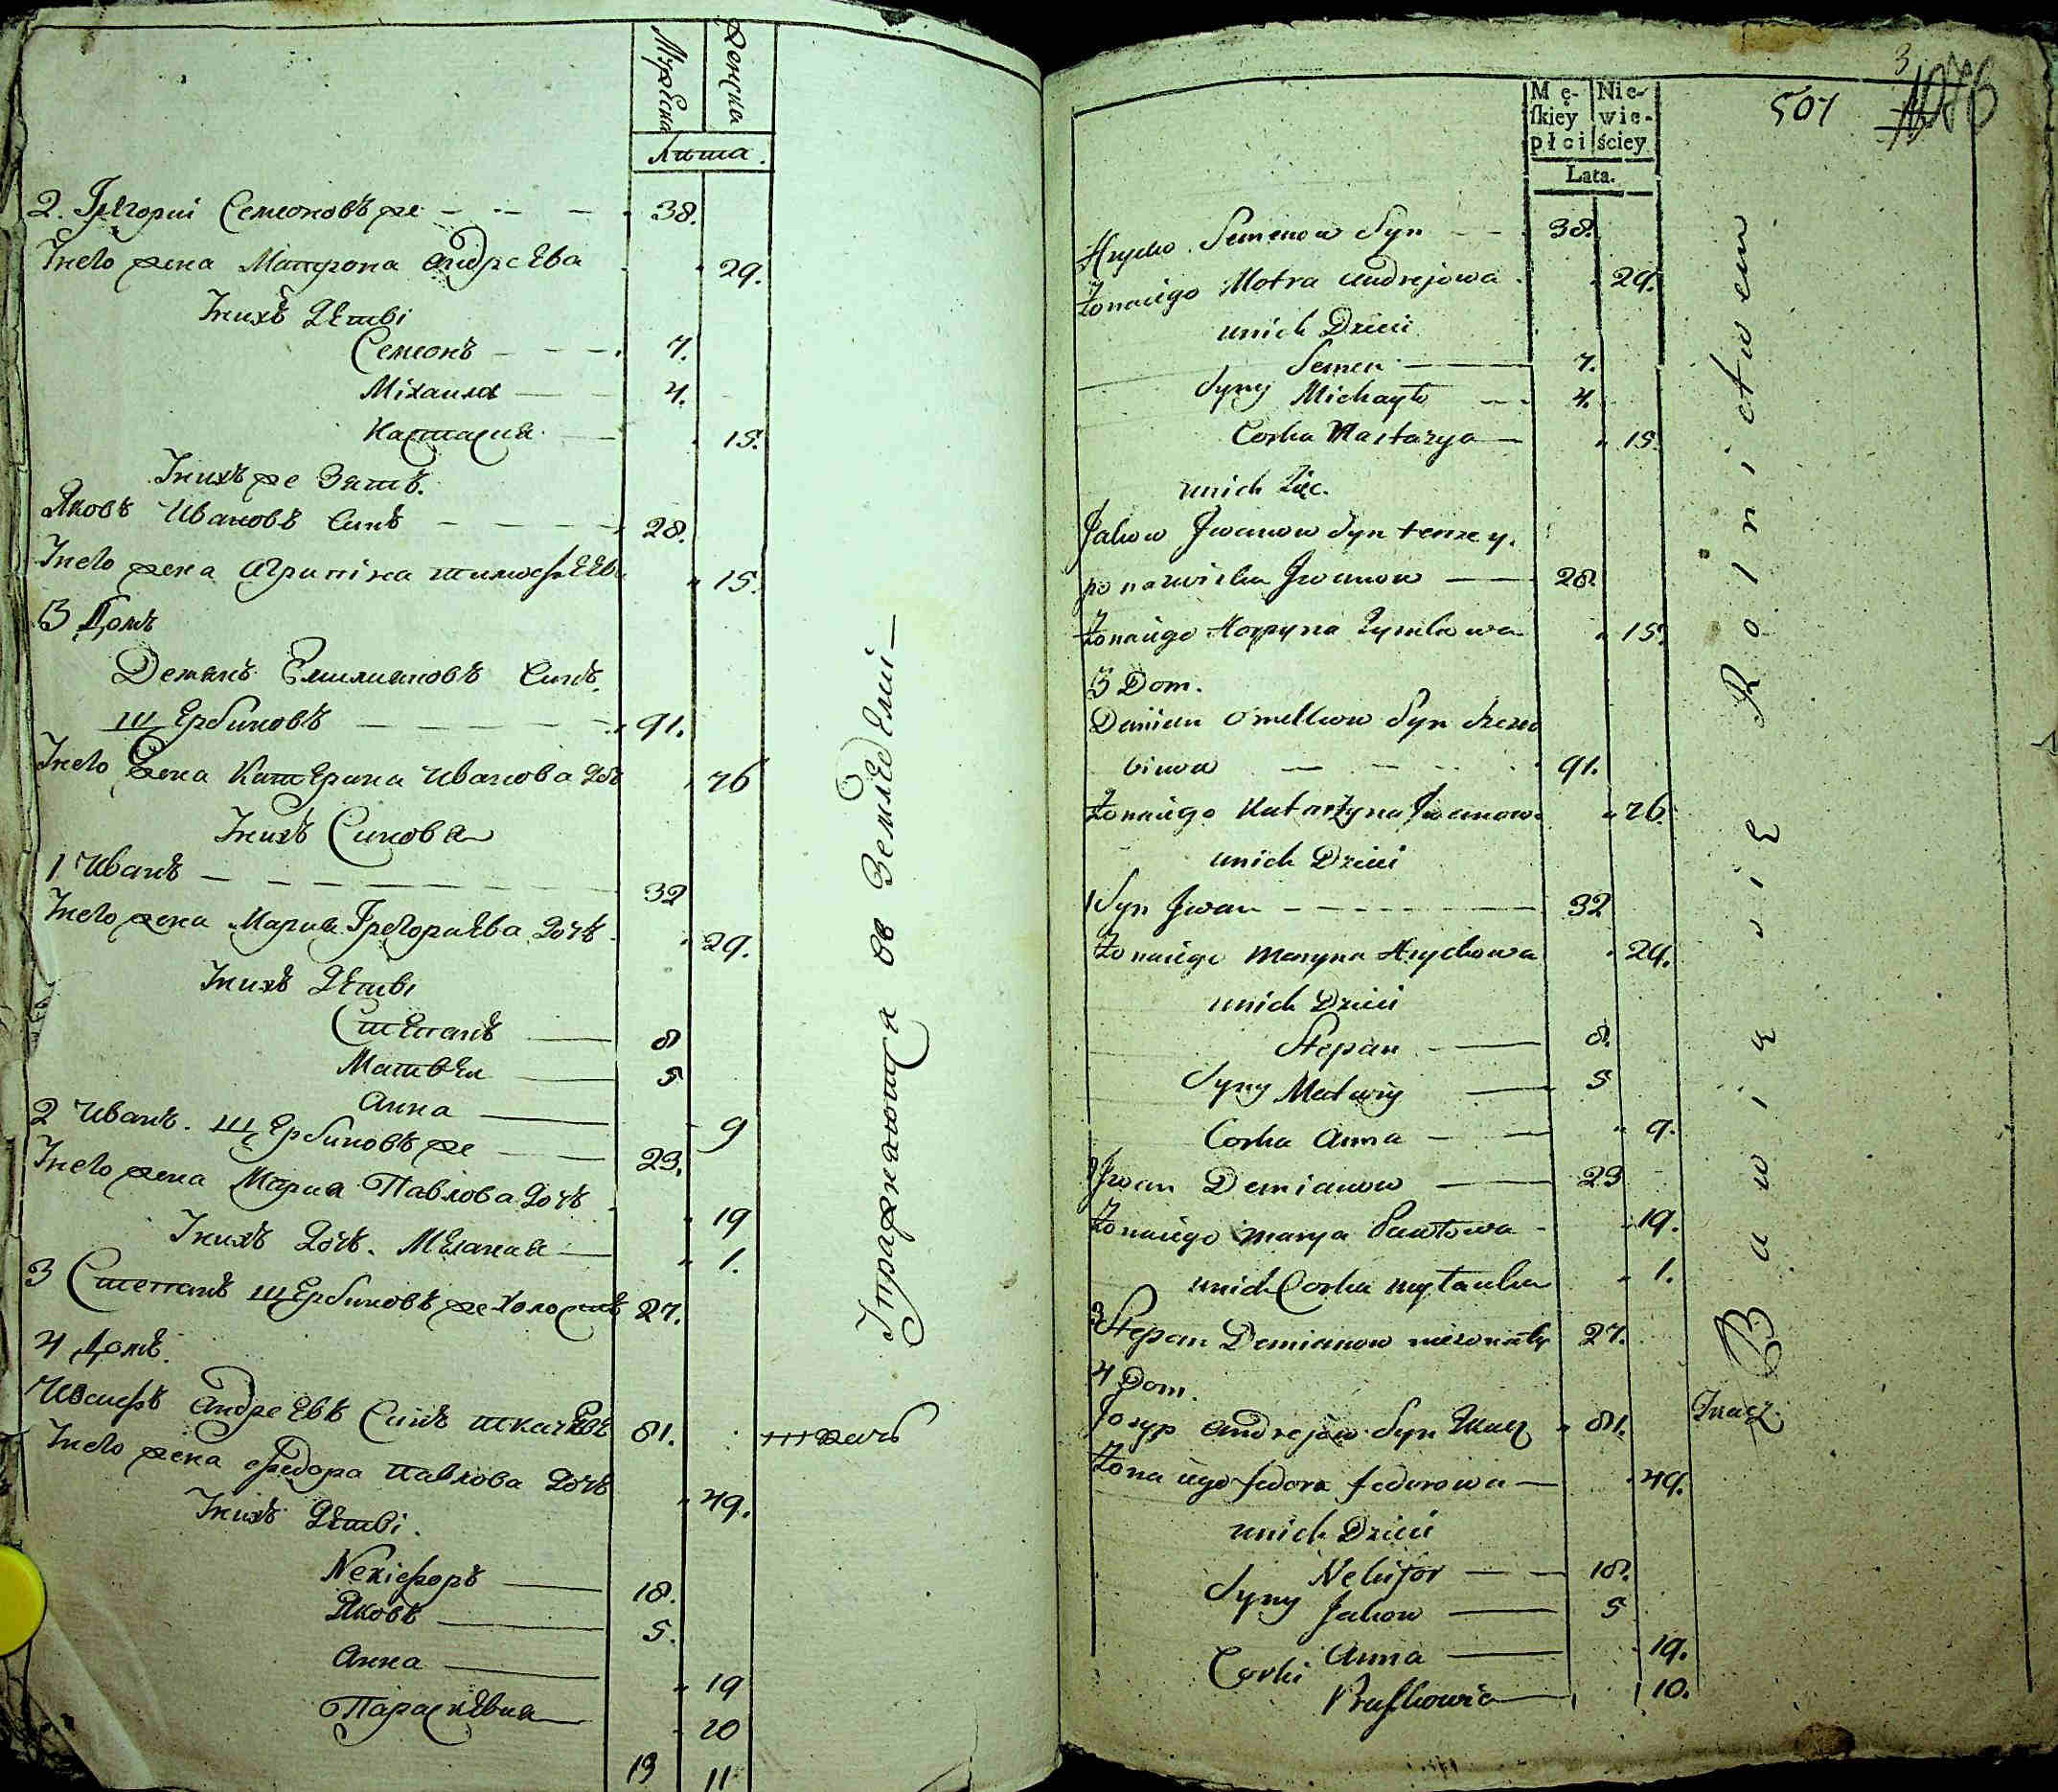 Мужеска
Женска
Лита.
2. Грегорий Семеоновъ же — — — 38.
У него жена Матрона Андреѣва 29.
У нихъ Дѣтви
Семеонъ — — — 7.
Міхаилъ — 4.
Настасия — 15.
У нихъ же Зять.
Яковъ Ивановъ Синъ — — — 28.
У него жена Агрипіна Тимофѣева 15.
3 Домъ
Демянъ Емилияновъ Синъ
Щербиновъ — — — 91.
У него жена Катерина Иванова До 76
У нихъ Синова
1 Иванъ — — — — — — 32
У него жена Мария Грегориева Дочь 29.
У нихъ Дѣтві
Стѣпанъ — 8
Матвѣи — 5
Анна — 9
2 Иванъ. Щербиновъ же — 23.
У него жена Мария Павлова Дочь 19
У нихъ Дочь. Мѣлания — 1.
3 Степанъ Щербиновъ же Холостъ 27.
4 Домъ.
Иосифъ Андреѣвъ Синъ 81.
У него жена Федора Павлова Дочь 49.
У нихъ Дѣтві.
Некіефоръ — 18.
Яковъ — 5.
Анна — 19
Параскѣвия — 10
13 11
Упражняются въ Земледѣлиі —
3
501
Mę-
ſkiey
płci
Nie-
wie-
ściey
Lata.
Hryćko Semenow Syn — — 38.
Żona iego Motra Andrejowa 29.
u nich Dzieci
Semen — 7.
Syny Michayło — — 4.
Corka Nastazya — 15.
u nich Zięć.
Jakow Jwanow Syn tenze y.
po nazwisku Jwanow — 28.
Żona iego Horpyna Tymkowa 15.
3 Dom.
Demian Omelkow Syn
— — — 91.
Żona iego Katarżyna Jwanowa 76.
u nich Dzieci
1 Syn Jwan — — — — 32
Żona iego Maryna Hryckowa 29.
u nich Dzieci
Stepan — 8.
Syny Matwiy — 5
Corka Anna — — 9.
2 Jwan Demianow — 23
Żona iego Marya Pawłowa — 19.
u nich Corka Mełanka 1.
3 Stepan Demianow nieżonaty 27.
4 Dom.
Josyp Andrejow Syn Tkacz 81.
Tkacz
Żona iego Fedora Fedorowa — 49.
u nich Dzieci
Nekifor — — 18.
Syny Jakow — 5
Anna — 19.
Corki
Praskowia — 10.
Bawią się Rolnictwem